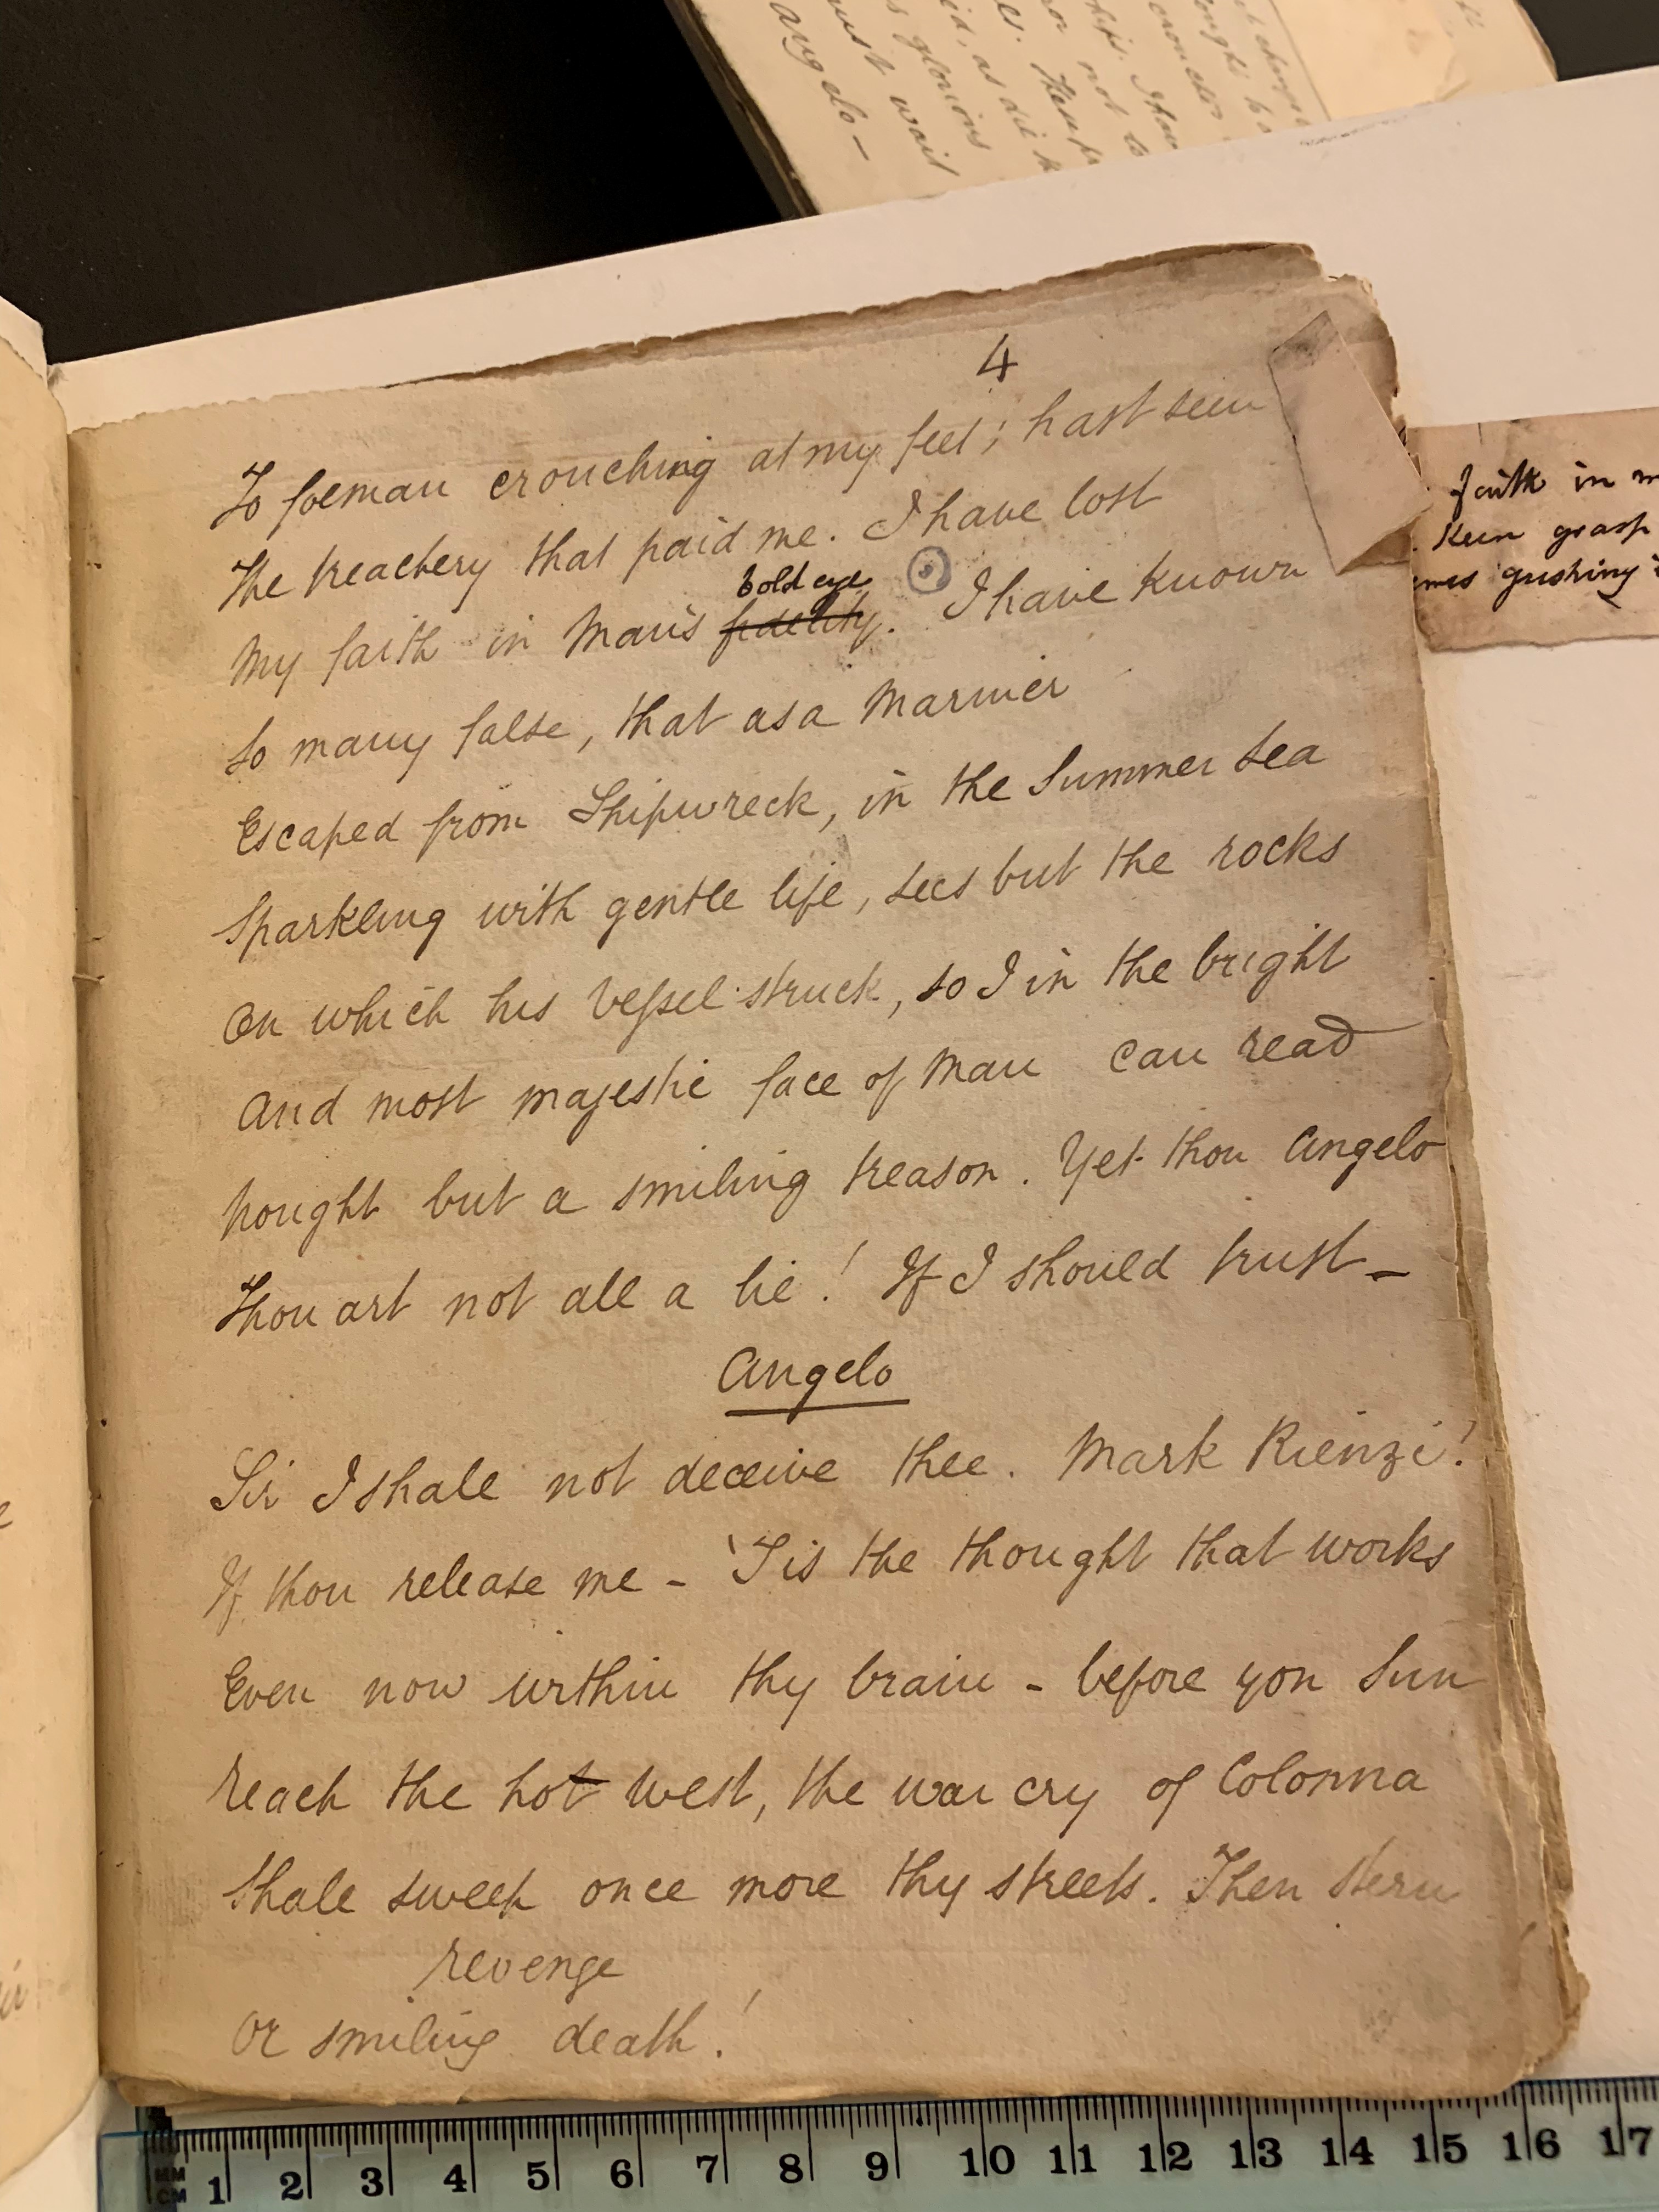 4
To foeman crouching at my feet; hast seen
The treachery that paid me. I have lost
bold eye
My faith in Man's fidelity. I have known
So many false, that as a Mariner
Escaped from Shipwreck, in the Summer Sea
Sparkling with gentle life, sees but the rocks
On which his Vessel struck, so I in the bright
And most majestic face of Man can read
Nought but a smiling treason. Yet thou Angelo
Thou art not all a lie! If I should trust –
Angelo
Sir I shall not deceive thee. Mark Rienzi!
If thou release me – 'Tis the thought that works
Even now within thy brain – before yon Sun
Reach the hot West, the war cry of Colonna
Shall sweep once more thy streets. Then stern
revenge
Or smiling death!
faith in m
Keen grasp
gushing
angelo –
must wait
glorious
as did
not to
MM
CM 1 2 3 4 5 6 7 8 9 10 11 12 13 14 15 16 17